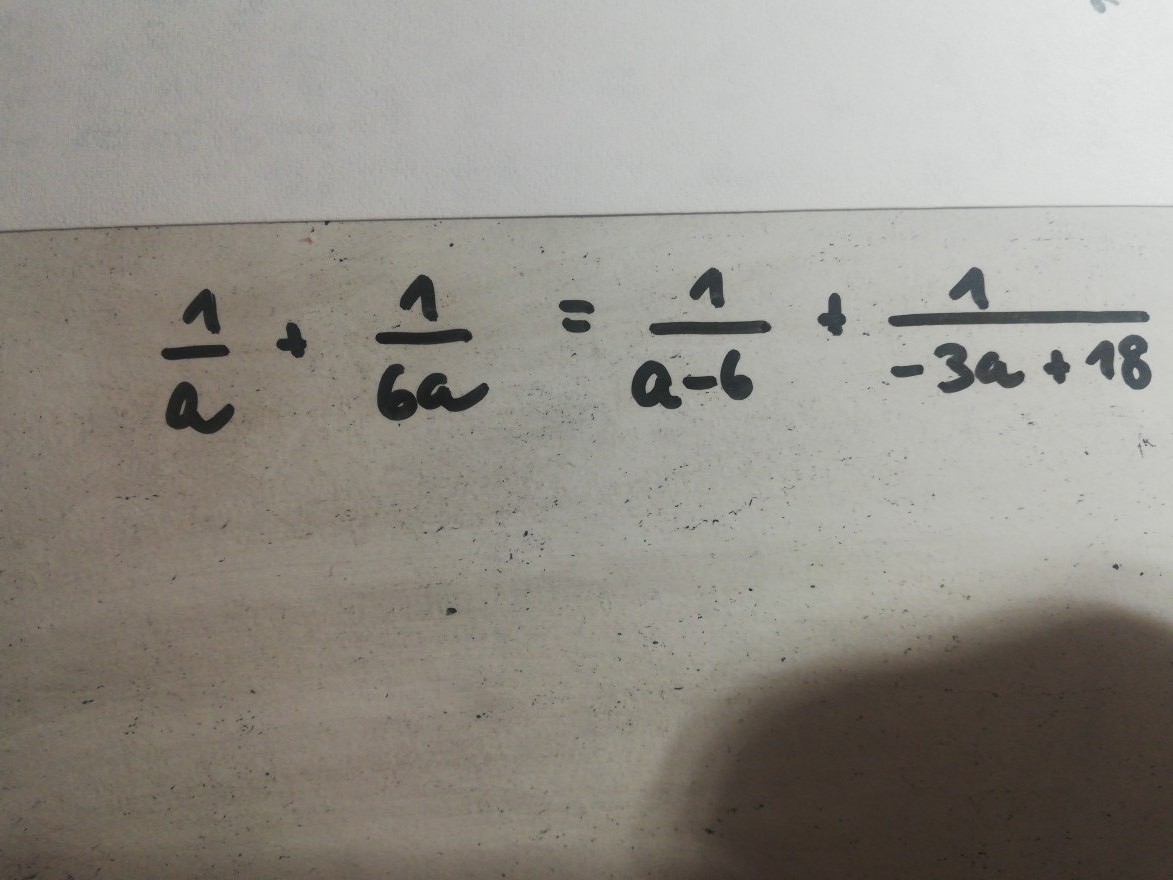 1/a + 1/6a = 1/a-6 + 1/-3a+18